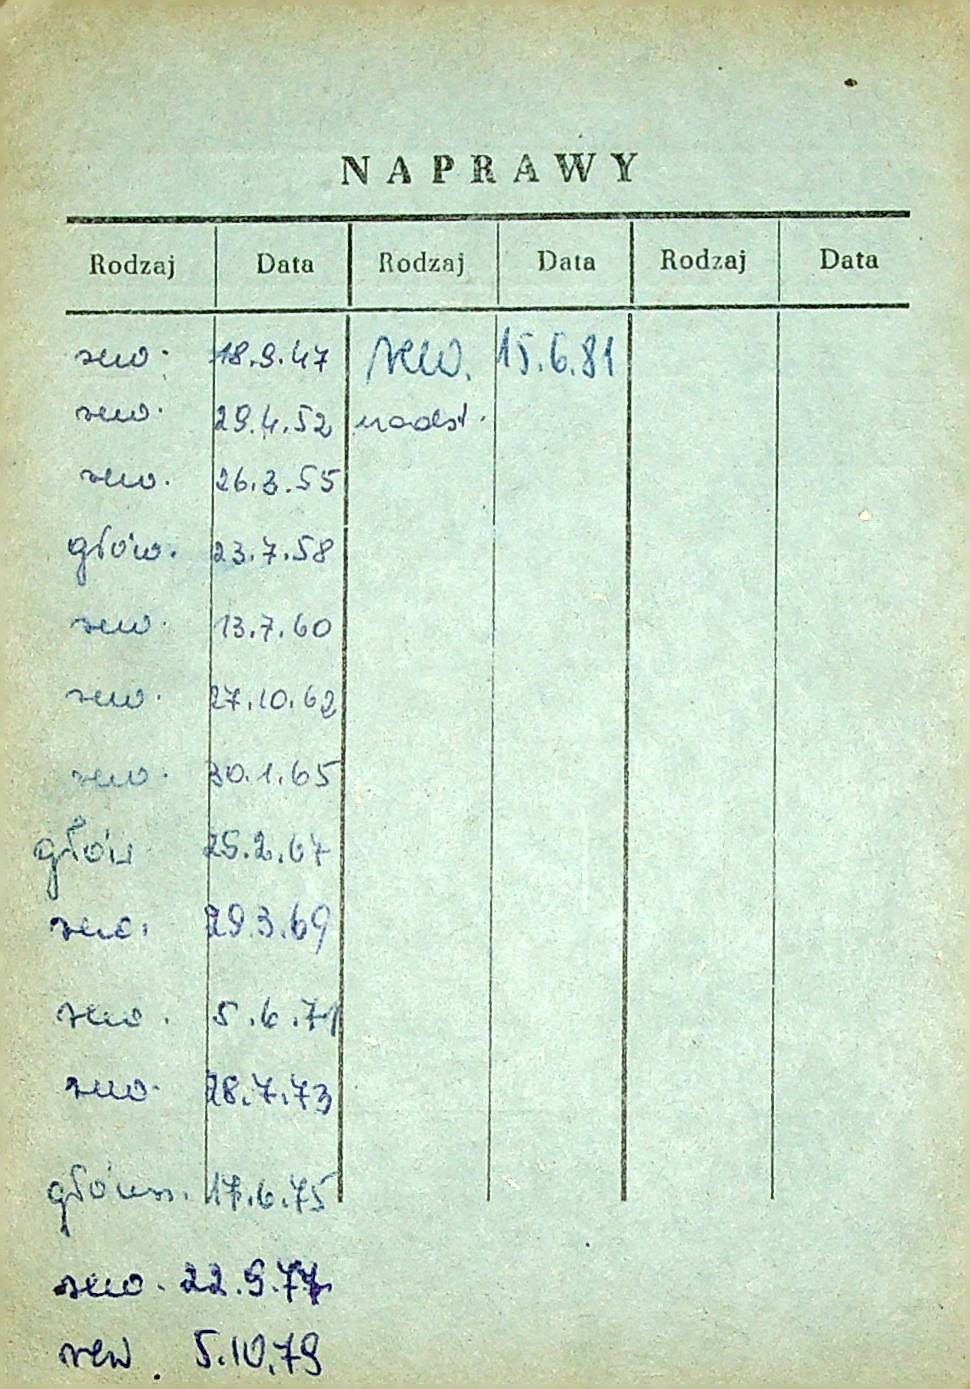 NAPRAWY
Rodzaj Data Rodzaj Data Rodzaj Data
rew. 18.9.47 rew. 15.6.81
rew. 29.4.52 nadst.
rew. 26.3.55
głów. 23.7.58
rew. 13.7.60
rew. 27.10.62
rew. 30.1.65
głów 25.2.67
rew. 29.3.69
rew. 5.6.71
rew. 28.7.73
główn. 17.6.75
rew. 22.9.77
rew 5.10.79